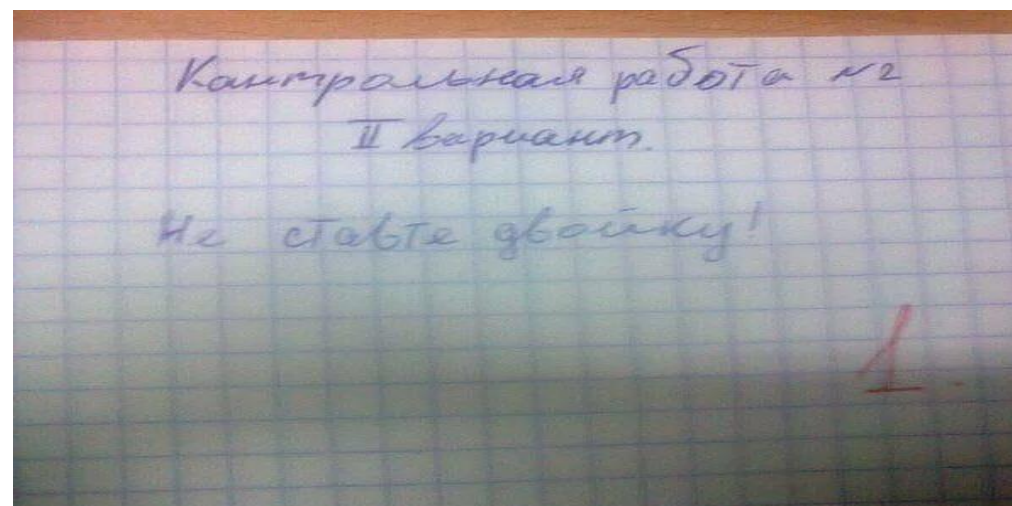 Контрольная работа №2
II вариант.
Не ставте двойку!
1.